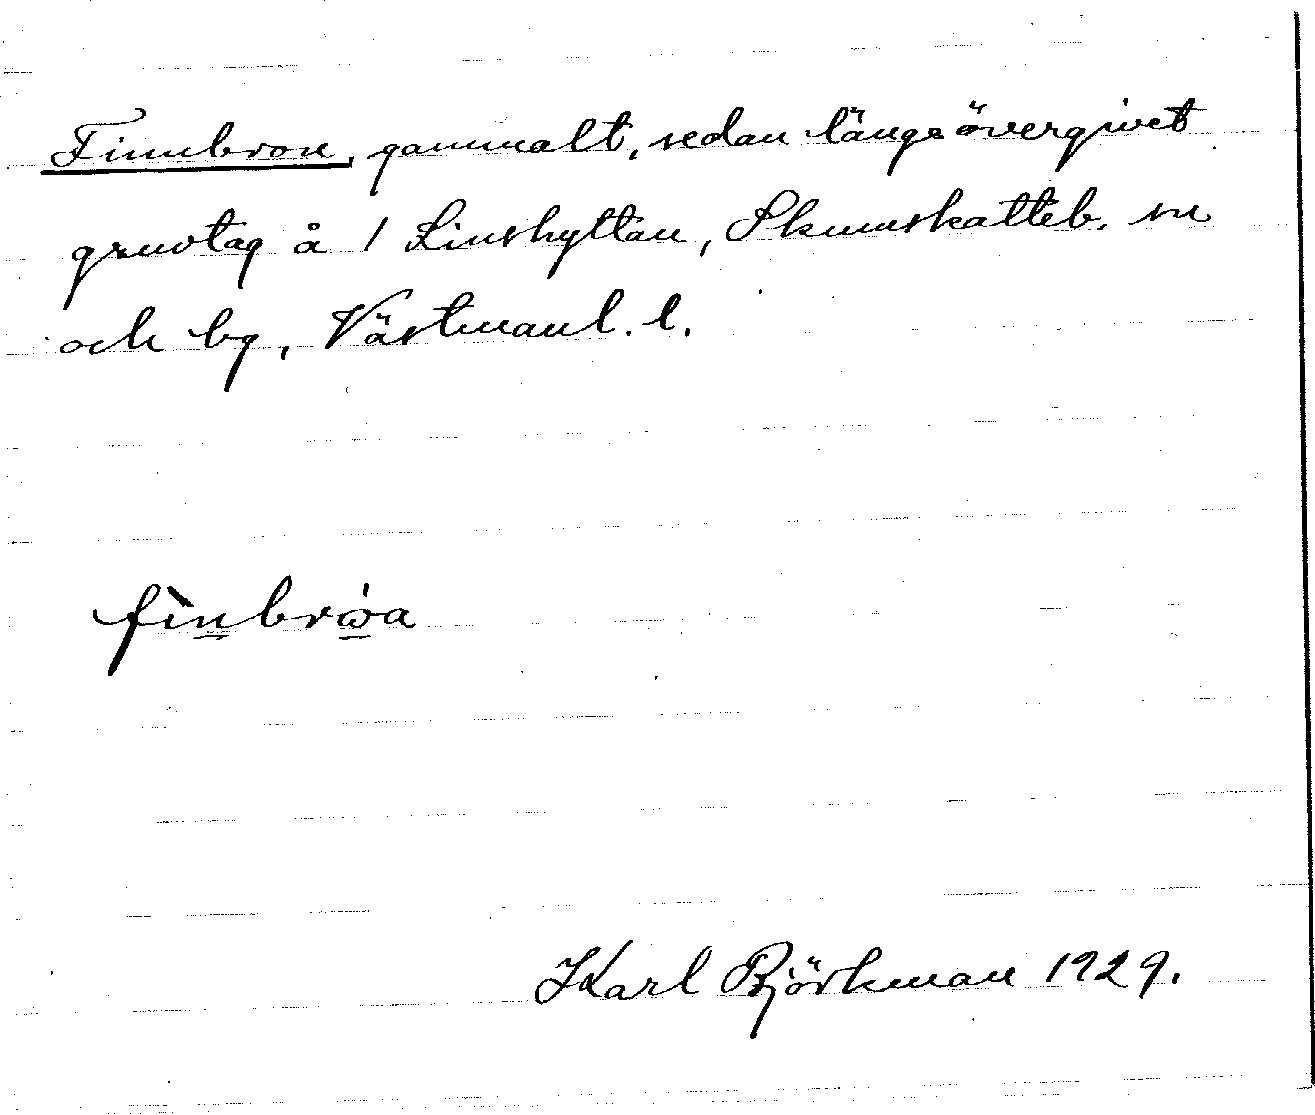 Finnbron, gammalt, sedan länge övergivet
gruvtag å 1 Linshyttan, Skinnskatteb. sn
och bg, Västmanl. l.
fìnbrẃa
Karl Björkman 1929.